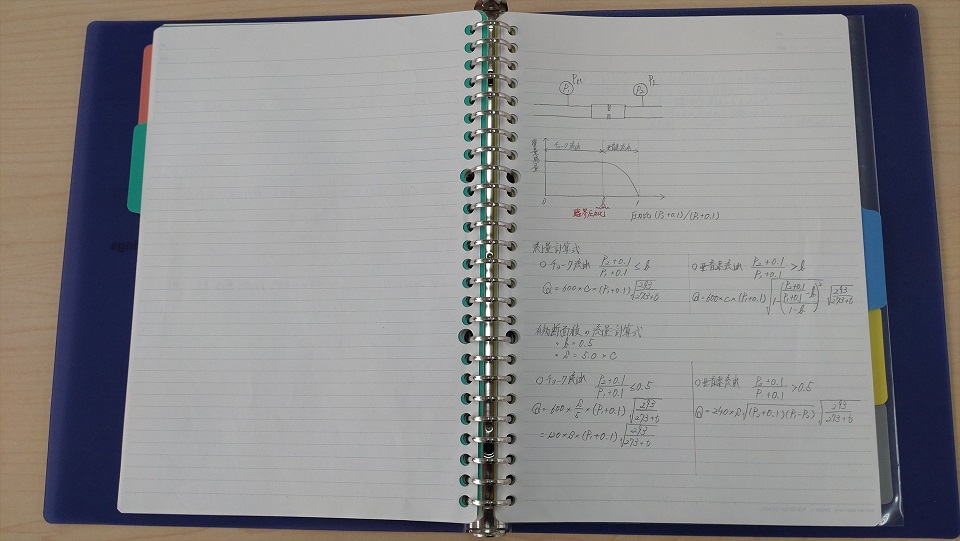 P₁
P₁
P₂
P₂
質量流量
チョーク流れ
亜音速流れ
0
b
1
臨界圧力比
圧力比 (P₂+0.1)/(P₁+0.1)
流量計算式
○チョーク流れ (P₂+0.1)/(P₁+0.1) ≤ b
Q=600×C×(P₁+0.1)√(293/(273+t))
○亜音速流れ (P₂+0.1)/(P₁+0.1) > b
Q=600×C×(P₁+0.1)√(1-(((P₂+0.1)/(P₁+0.1)-b)/(1-b))²)√(293/(273+t))
有効断面積の流量計算式
・b=0.5
・S=5.0×C
○チョーク流れ (P₂+0.1)/(P₁+0.1) ≤ 0.5
Q=600×S/5×(P₁+0.1)√(293/(273+t))
=120×S×(P₁+0.1)√(293/(273+t))
○亜音速流れ (P₂+0.1)/(P₁+0.1) > 0.5
Q=240×S√((P₂+0.1)(P₁-P₂))√(293/(273+t))